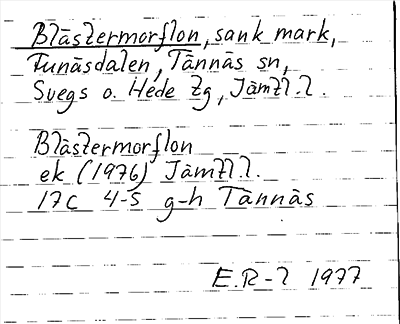 Blästermorflon, sank mark,
Funäsdalen, Tännäs sn,
Svegs o. Hede tg, Jämtl. l.
Blästermorflon
ek (1976) Jämtl l.
17c 4-5 g-h Tännäs
E.R-l 1977